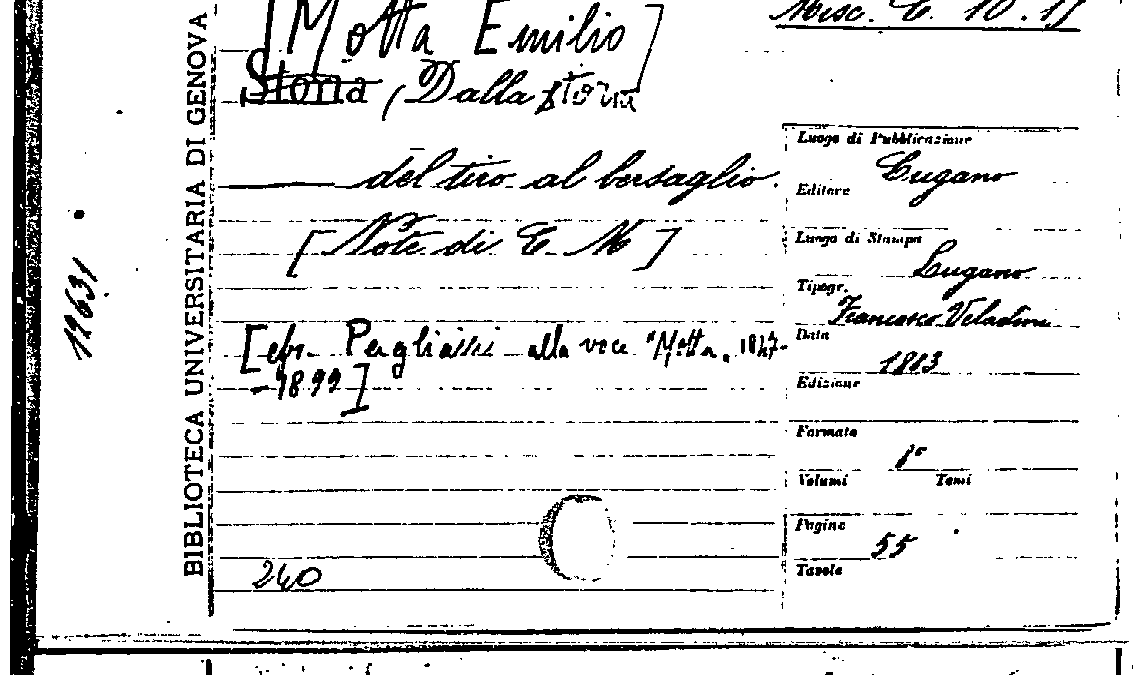 [Motta Emilio]
Misc. C. 10. 17
Storia (Dalla storia
del tiro al bersaglio.
[Note di E. M]
[cfr. Pagliaini alla voce "Motta, 1847-
-1899]
240
Luogo di Pubblicazione
Lugano
Editore
Luogo di Stampa
Lugano
Tipogr.
Francesco Veladini
Data
1883
Edizione
Formato
8°
Volumi Tomi
Pagine
55
Tavole
BIBLIOTECA UNIVERSITARIA DI GENOVA
19631